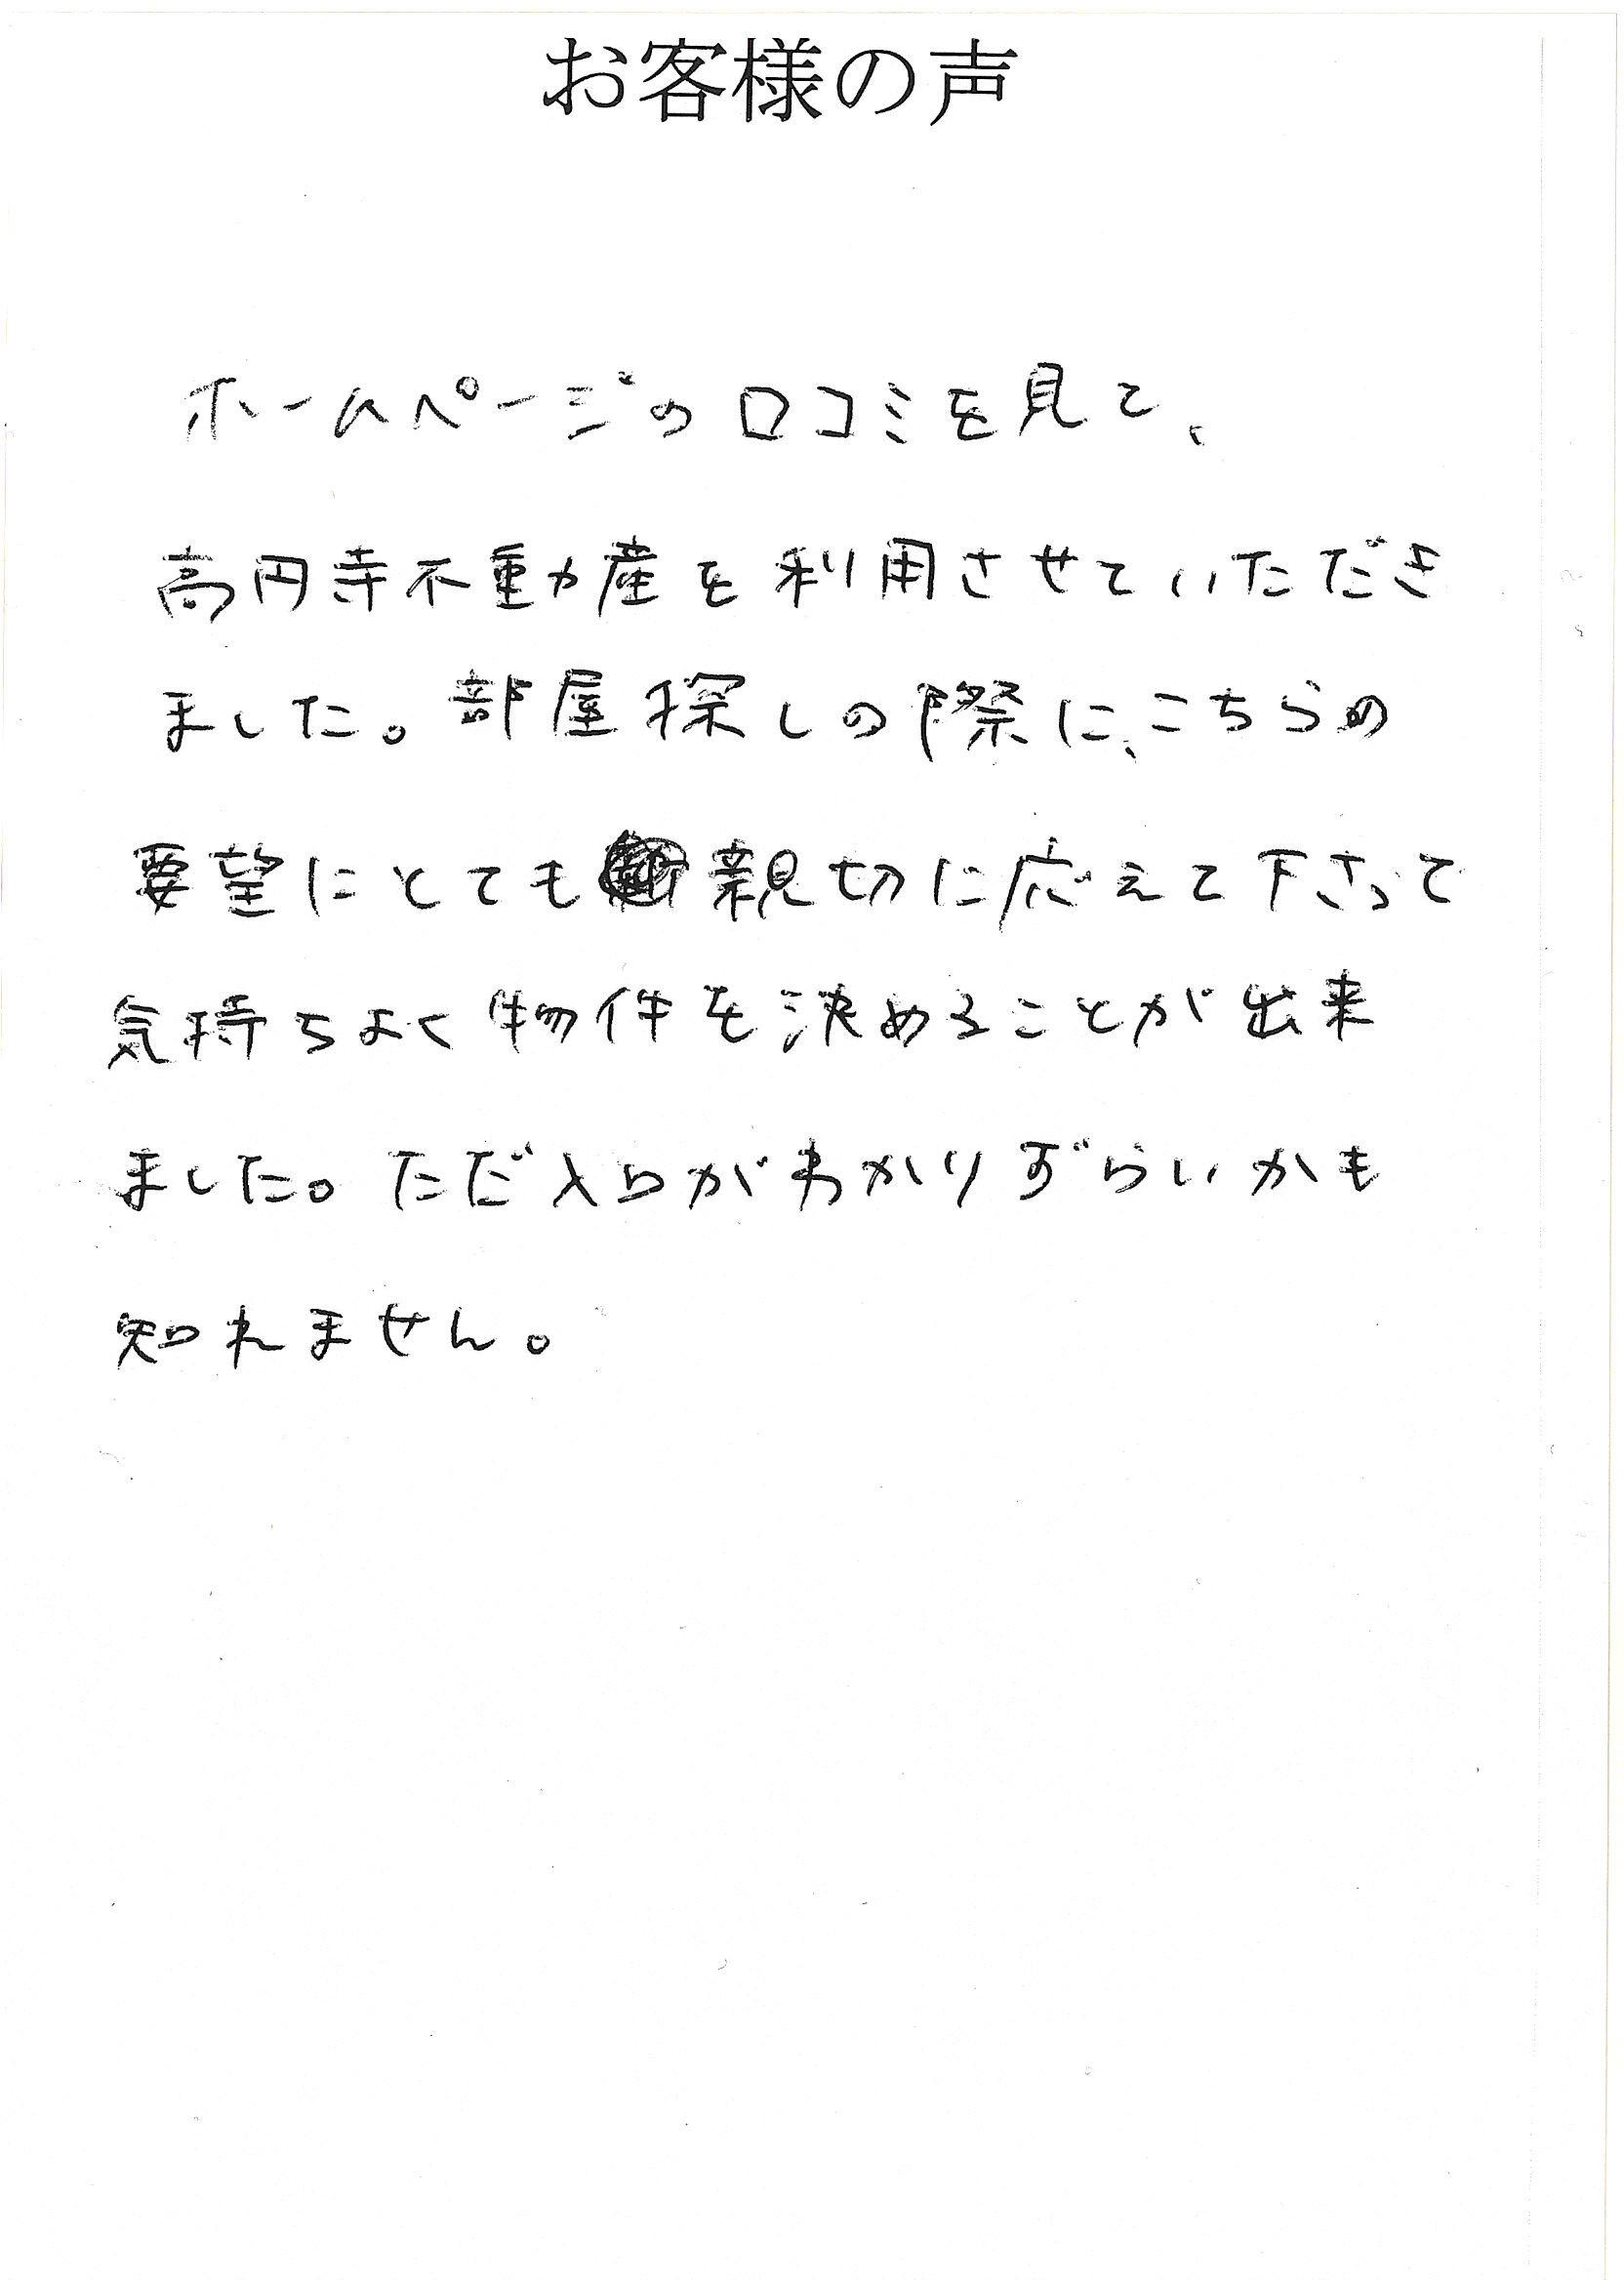 お客様の声
ホームページの口コミを見て、
高円寺不動産を利用させていただき
ました。部屋探しの際に、こちらの
要望にとても親切に応えて下さって
気持ちよく物件を決めることが出来
ました。ただ入口がわかりずらいかも
知れません。